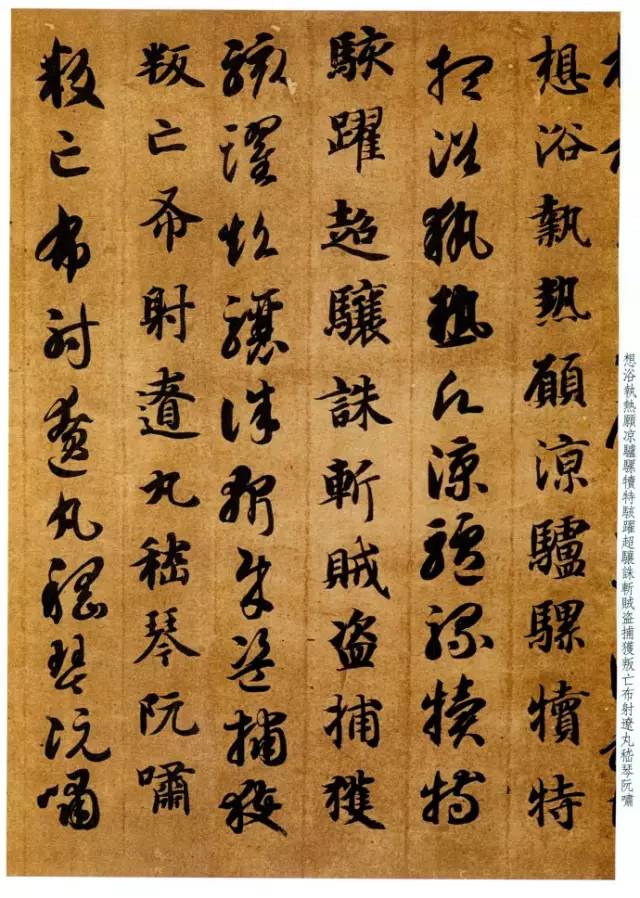 想浴執熱願凉驢騾犢特駭躍超驤誅斬賊盗捕獲叛亡布射遼丸嵇琴阮嘯
想浴執熱願涼驢騾犢特
想浴執熱願涼驢騾犢特
駭躍超驤誅斬賊盜捕獲
駭躍超驤誅斬賊盜捕獲
叛亡布射遼丸嵇琴阮嘯
叛亡布射遼丸嵇琴阮嘯